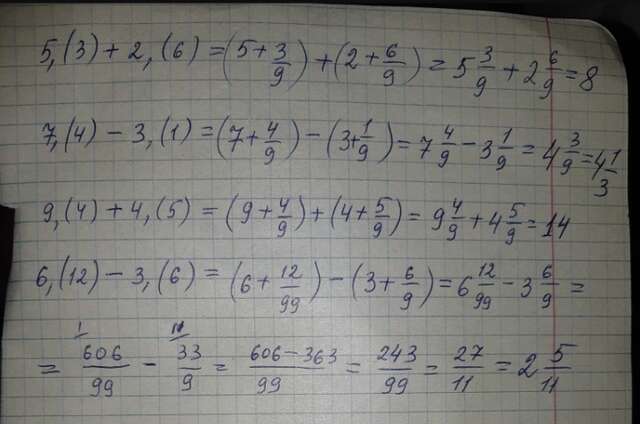 5,(3) + 2,(6) = (5 + 3/9) + (2 + 6/9) = 5 3/9 + 2 6/9 = 8
7,(4) - 3,(1) = (7 + 4/9) - (3 + 1/9) = 7 4/9 - 3 1/9 = 4 3/9 = 4 1/3
9,(4) + 4,(5) = (9 + 4/9) + (4 + 5/9) = 9 4/9 + 4 5/9 = 14
6,(12) - 3,(6) = (6 + 12/99) - (3 + 6/9) = 6 12/99 - 3 6/9 =
= 606/99 - 33/9 = 606 - 363/99 = 243/99 = 27/11 = 2 5/11